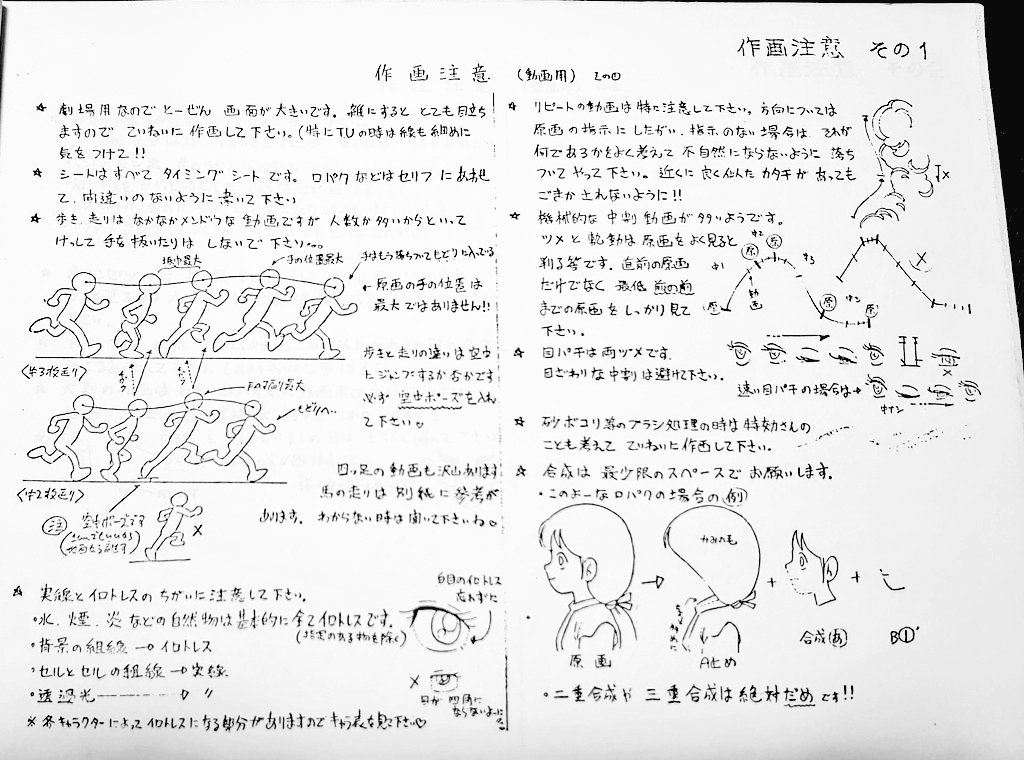 作画注意 その1
作画注意 (動画用) その1
☆ 劇場用なのでとーぜん 画面が大きいです。雑にすると とても目立ち
ますので ていねいに 作画して下さい。(特にTUの時は線も細めに
気をつけて!!
☆ シートはすべて タイミングシートです。口パクなどはセリフにあわせ
て、間違いのないように 書いて下さい
☆ 歩き、走りは なかなかメンドウな動画ですが 人数が多いからといって
けっして 手を抜いたりは しないで下さい
手の位置最大
手はもう落ちついてもどりに入ってる
← 原画の手の位置は
最大ではありません!!
歩きと走りの違いは空中
にジャンプするか否かです
必ず 空中ポーズを入れ
て下さい。
〈中3枚走り〉
下の振り最大
もどりへ…
〈中2枚走り〉
注 空中ポーズです
×
四ッ足の動画も沢山あります
馬の走りは別紙に参考が
あります。わからない時は聞いて下さいね
☆ 実線とイロトレスのちがいに注意して下さい。
・水、煙、炎などの自然物は基本的に全てイロトレスです。
(指定のある物を除く)
・背景の組線 → イロトレス
・セルとセルの組線 → 実線
・透過光 → 〃
※ 各キャラクターによってイロトレスになる部分がありますのでキャラ表を見て下さい♡
白目のイロトレス
忘れずに
×
目が四角に
ならないように
☆ リピートの動画は特に注意して下さい。方向については
原画の指示にしたがい、指示のない場合は、それが
何であるかをよく考えて 不自然にならないように 落ち
ついてやって下さい。近くに良く似たカタチがあっても
ごまかされないように!!
×
☆ 機械的な中割動画が多いようです。
ツメと軌動は原画をよく見ると
判る筈です。直前の原画
だけでなく 最低 前の前
までの原画をしっかり見て
下さい。
原
中1
中2
原
原
中3
動画
原
原
×
☆ 目パチは両ヅメです。
目ざわりな中割は避けて下さい。
×
速い目パチの場合は→
中ナシ
☆ 砂ボコリ等のブラシ処理の時は特効さんの
ことも考えて ていねいに作画して下さい。
☆ 合成は 最少限のスペースで お願いします。
・このよーな口パクの場合の例
かみの毛
原画
A止め
合成(画)
B①'
・二重合成や 三重合成は絶対だめです!!